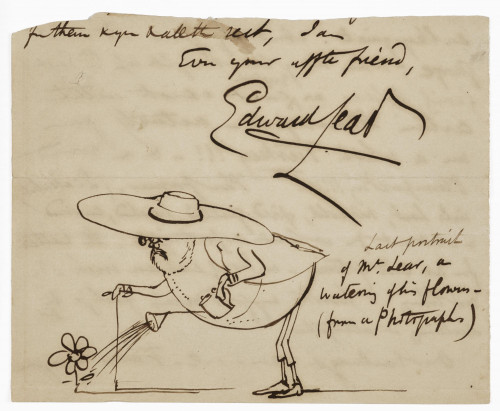 them rest, I am
Ever your affte friend,
Edward Lear
Last portrait
of Mr. Lear, a
watering of his flowers —
(from a Photograph)